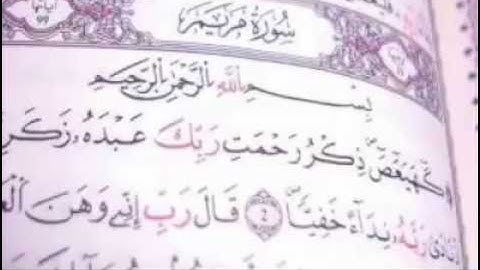 سُورَةُ مَرْيَمَ
بِسْمِ اللَّهِ الرَّحْمَٰنِ الرَّحِيمِ
كٓهيعٓصٓ ذِكْرُ رَحْمَتِ رَبِّكَ عَبْدَهُۥ زَكَرِ
نَادَىٰ رَبَّهُۥ نِدَآءً خَفِيًّا قَالَ رَبِّ إِنِّي وَهَنَ الْعَ